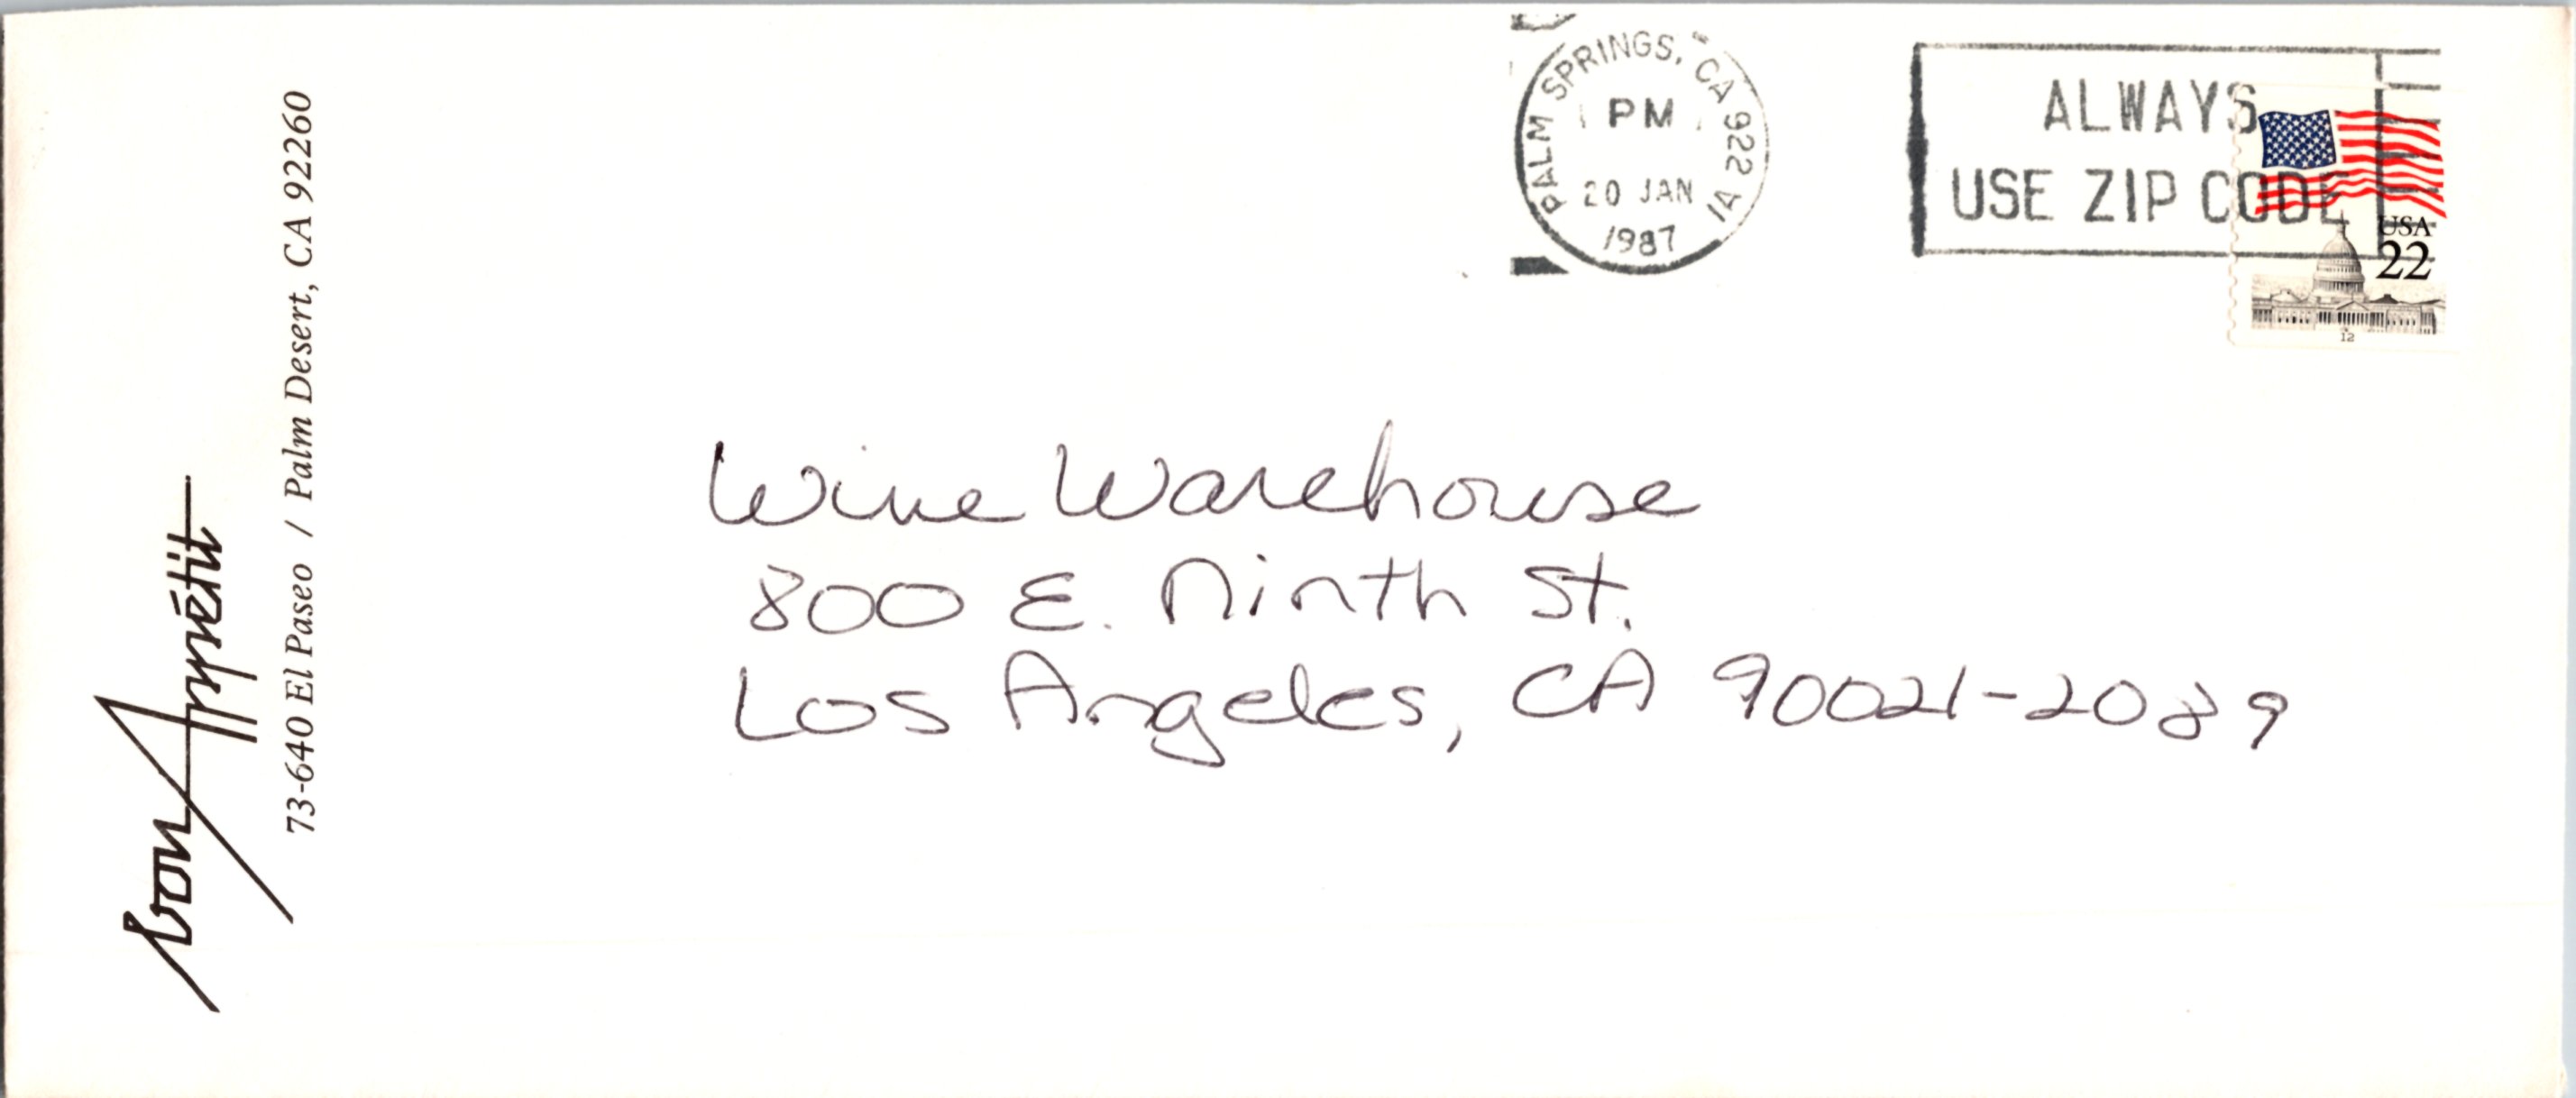 bon Appétit
73-640 El Paseo / Palm Desert, CA 92260
PALM SPRINGS, CA 922 1A
PM
20 JAN
1987
ALWAYS
USE ZIP CODE
USA
22
12
Wine Warehouse
800 E. Ninth St.
Los Angeles, CA 90021-2089